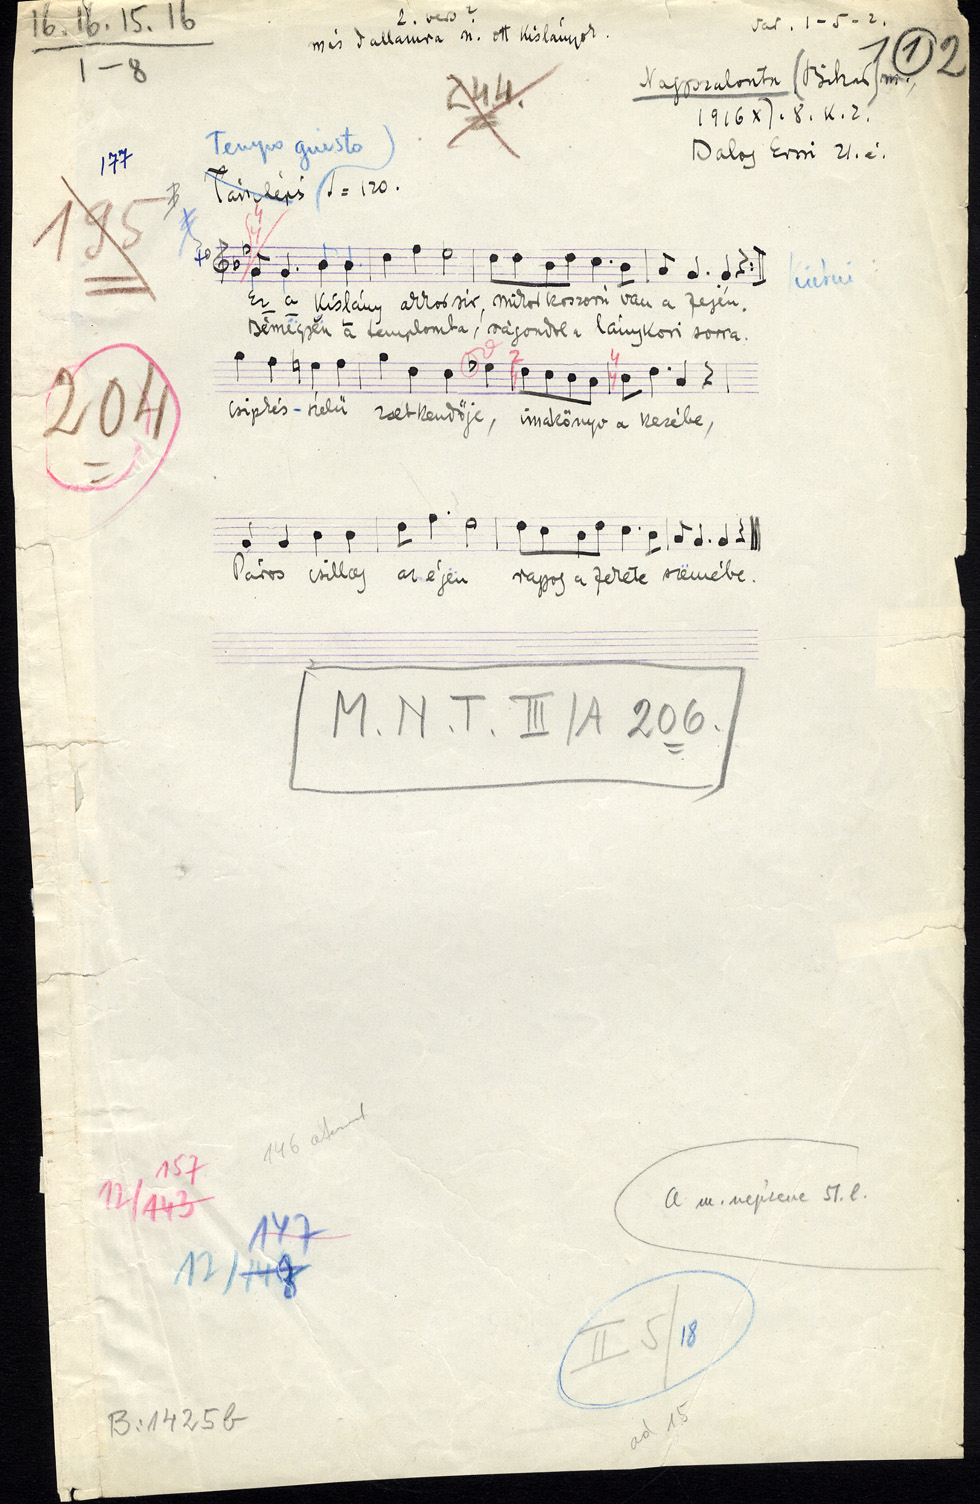 16. 16. 15. 16
1-8
2. vers?
más dallamra n. ott Kislányok.
var. 1-5-2.
1 1 2
244.
Nagyszalonta (Bihar) m.,
1916 X). 8. K. Z.
Balog Erzsi 21. é.
177
Tempo giusto
Tánclépés ♩ = 120.
195
Ez a kislány akkor sír, mikor koszorú van a fején.
Bemégyën a templomba, rágondol a lánykori sorra.
204
csipkés-szélű zsebkendője, imakönyv a kezébe,
Páros csillag az égën ragyog a fekete szëmébe.
M. N. T. III/A 206.
146
157
12/143
147
12/148
A m. népzene 51. l.
II 5/18
ad 15
B: 1425b